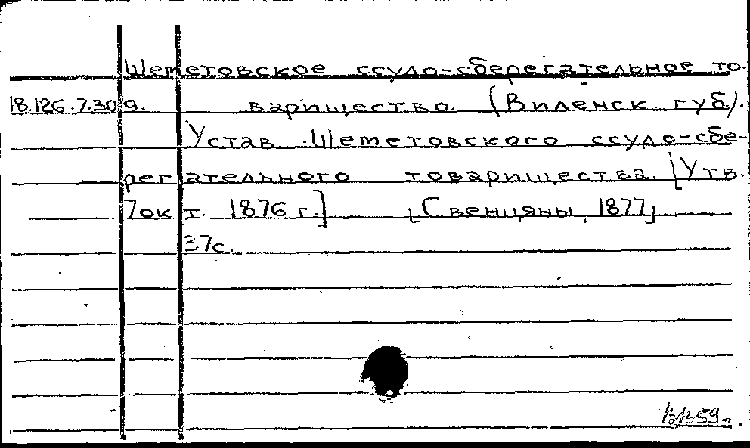 Шеметовское ссудо-сберегательное то-
18.126.7.309. варищество. (Виленск. губ).
Устав Шеметовского ссудо-сбе-
регательного товарищества. [Утв.
7 окт. 1876 г.] [Свенцяны, 1877].
37с.